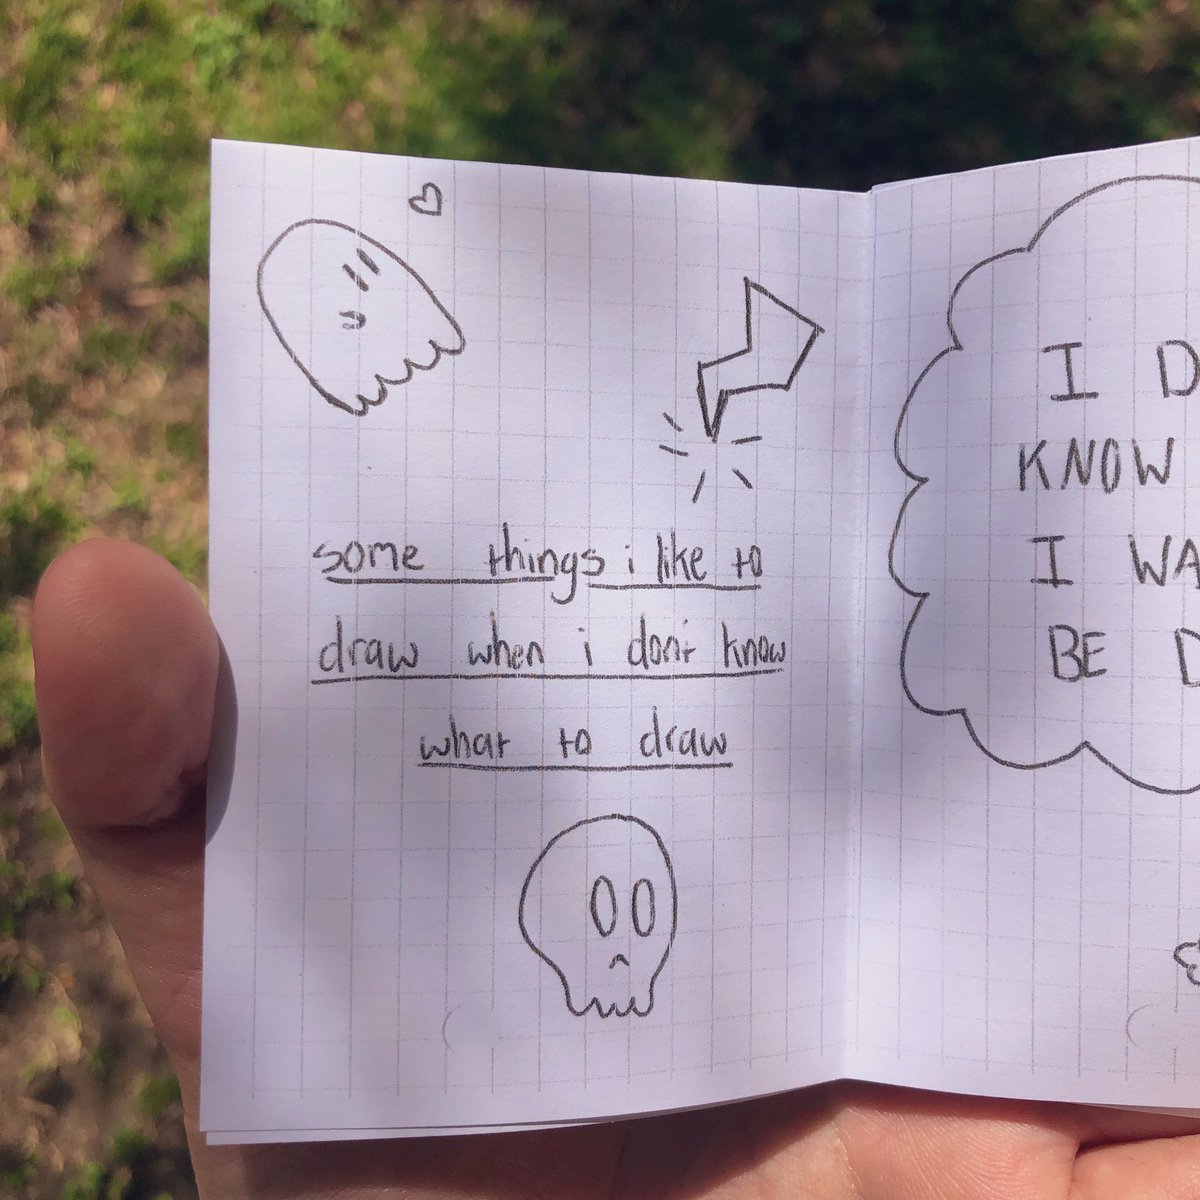 some things i like to
draw when i don't know
what to draw
I D
KNOW
I WA
BE D